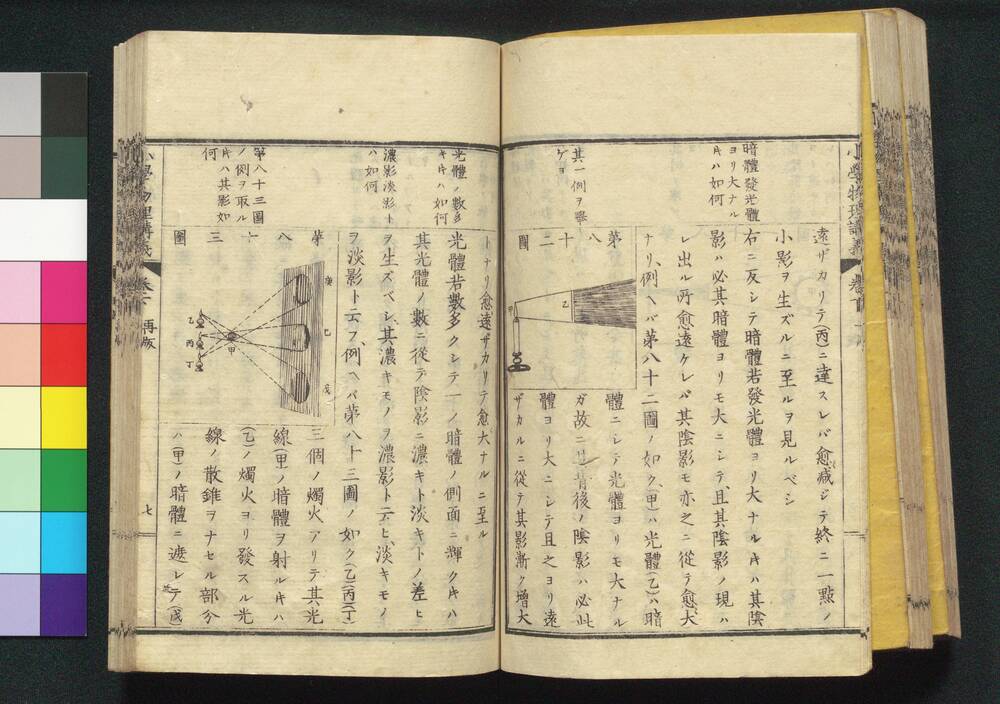 小學物理講義 卷下
暗體發光體
ヨリ大ナル
𪜈ハ如何
其一例ヲ擧
ゲヨ
遠ザカリテ(丙)ニ達スレバ愈減ジテ終ニ一點ノ
小影ヲ生ズルニ至ルヲ見ルベシ
右ニ反シテ暗體若發光體ヨリ大ナル𪜈ハ其陰
影ハ必其暗體ヨリモ大ニシテ、且其陰影ノ現ハ
レ出ル所愈遠ケレバ其陰影モ亦之ニ從テ愈大
ナリ、例ヘバ第八十二圖ノ如ク、(甲)ハ光體(乙)ハ暗
第八十二圖
甲
乙
體ニシテ光體ヨリモ大ナル
ガ故ニ其背後ノ陰影ハ必此
體ヨリ大ニシテ且之ヨリ遠
ザカルニ從テ其影漸ク增大
光體ノ數多
𪜈ハ如何
濃影淡影ト
ハ如何
第八十三圖
ノ例ヲ取ル
𪜈ハ其影如
何
トナリ愈遠ザカリテ愈大ナルニ至ル
光體若數多クシテ一ノ暗體ノ側面ニ輝ク𪜈ハ
其光體ノ數ニ從テ陰影ニ濃キト淡キトノ差ヒ
ヲ生ズベシ、其濃キモノヲ濃影ト云ヒ、淡キモノ
ヲ淡影ト云フ、例ヘバ第八十三圖ノ如ク(乙)(丙)(丁)
第八十三圖
庚
己
戊
甲
乙
丙
丁
三個ノ燭火アリテ其光
線(甲)ノ暗體ヲ射ル𪜈ハ
(乙)ノ燭火ヨリ發スル光
線ノ散錐ヲナセル部分
ハ(甲)ノ暗體ニ遮レテ(戊)
再版
七